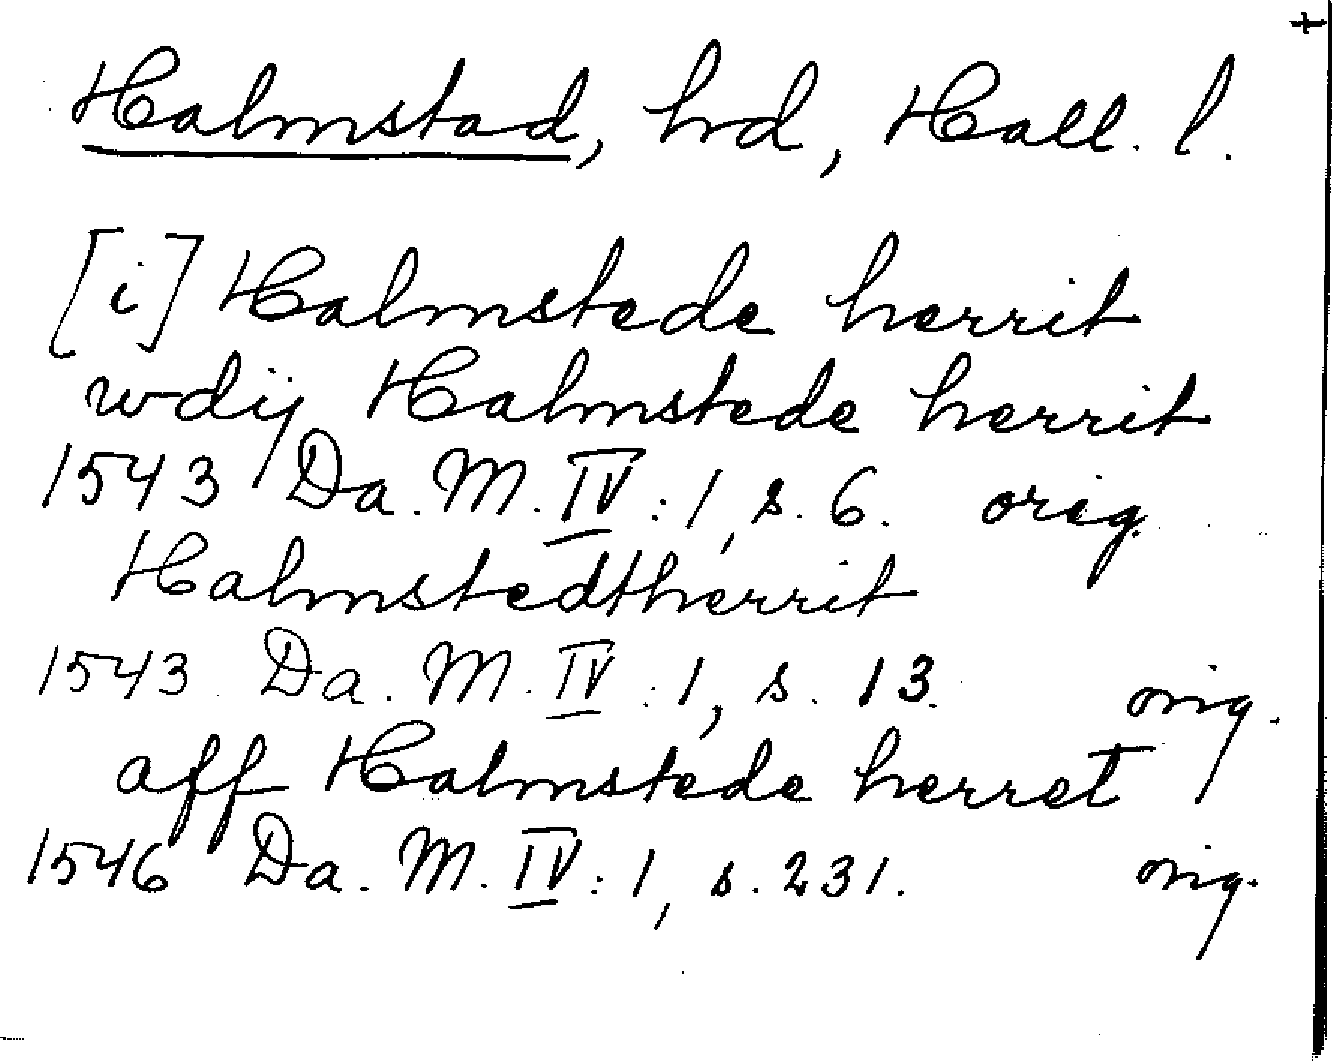 +
Halmstad, hd, Hall. l.
[i] Halmstede herrit
wdij Halmstede herrit
1543 Da. M. IV : 1, s. 6. orig.
Halmstedtherrit
1543 Da. M. IV : 1, s. 13. orig.
aff Halmstede herret
1546 Da. M. IV : 1, s. 231. orig.